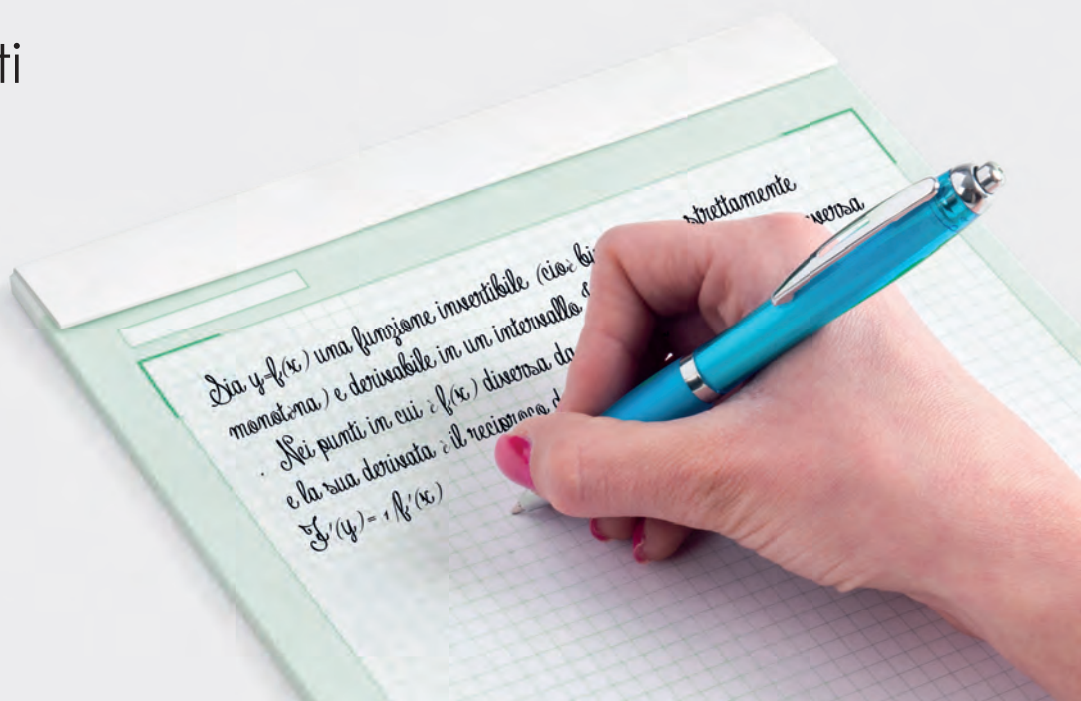 ti
Sia y=f(x) una funzione invertibile (cioè bi strettamente
monotòna) e derivabile in un intervallo versa
. Nei punti in cui è f(x) diversa da
e la sua derivata è il reciproco d
F'(y)= 1/f'(x)